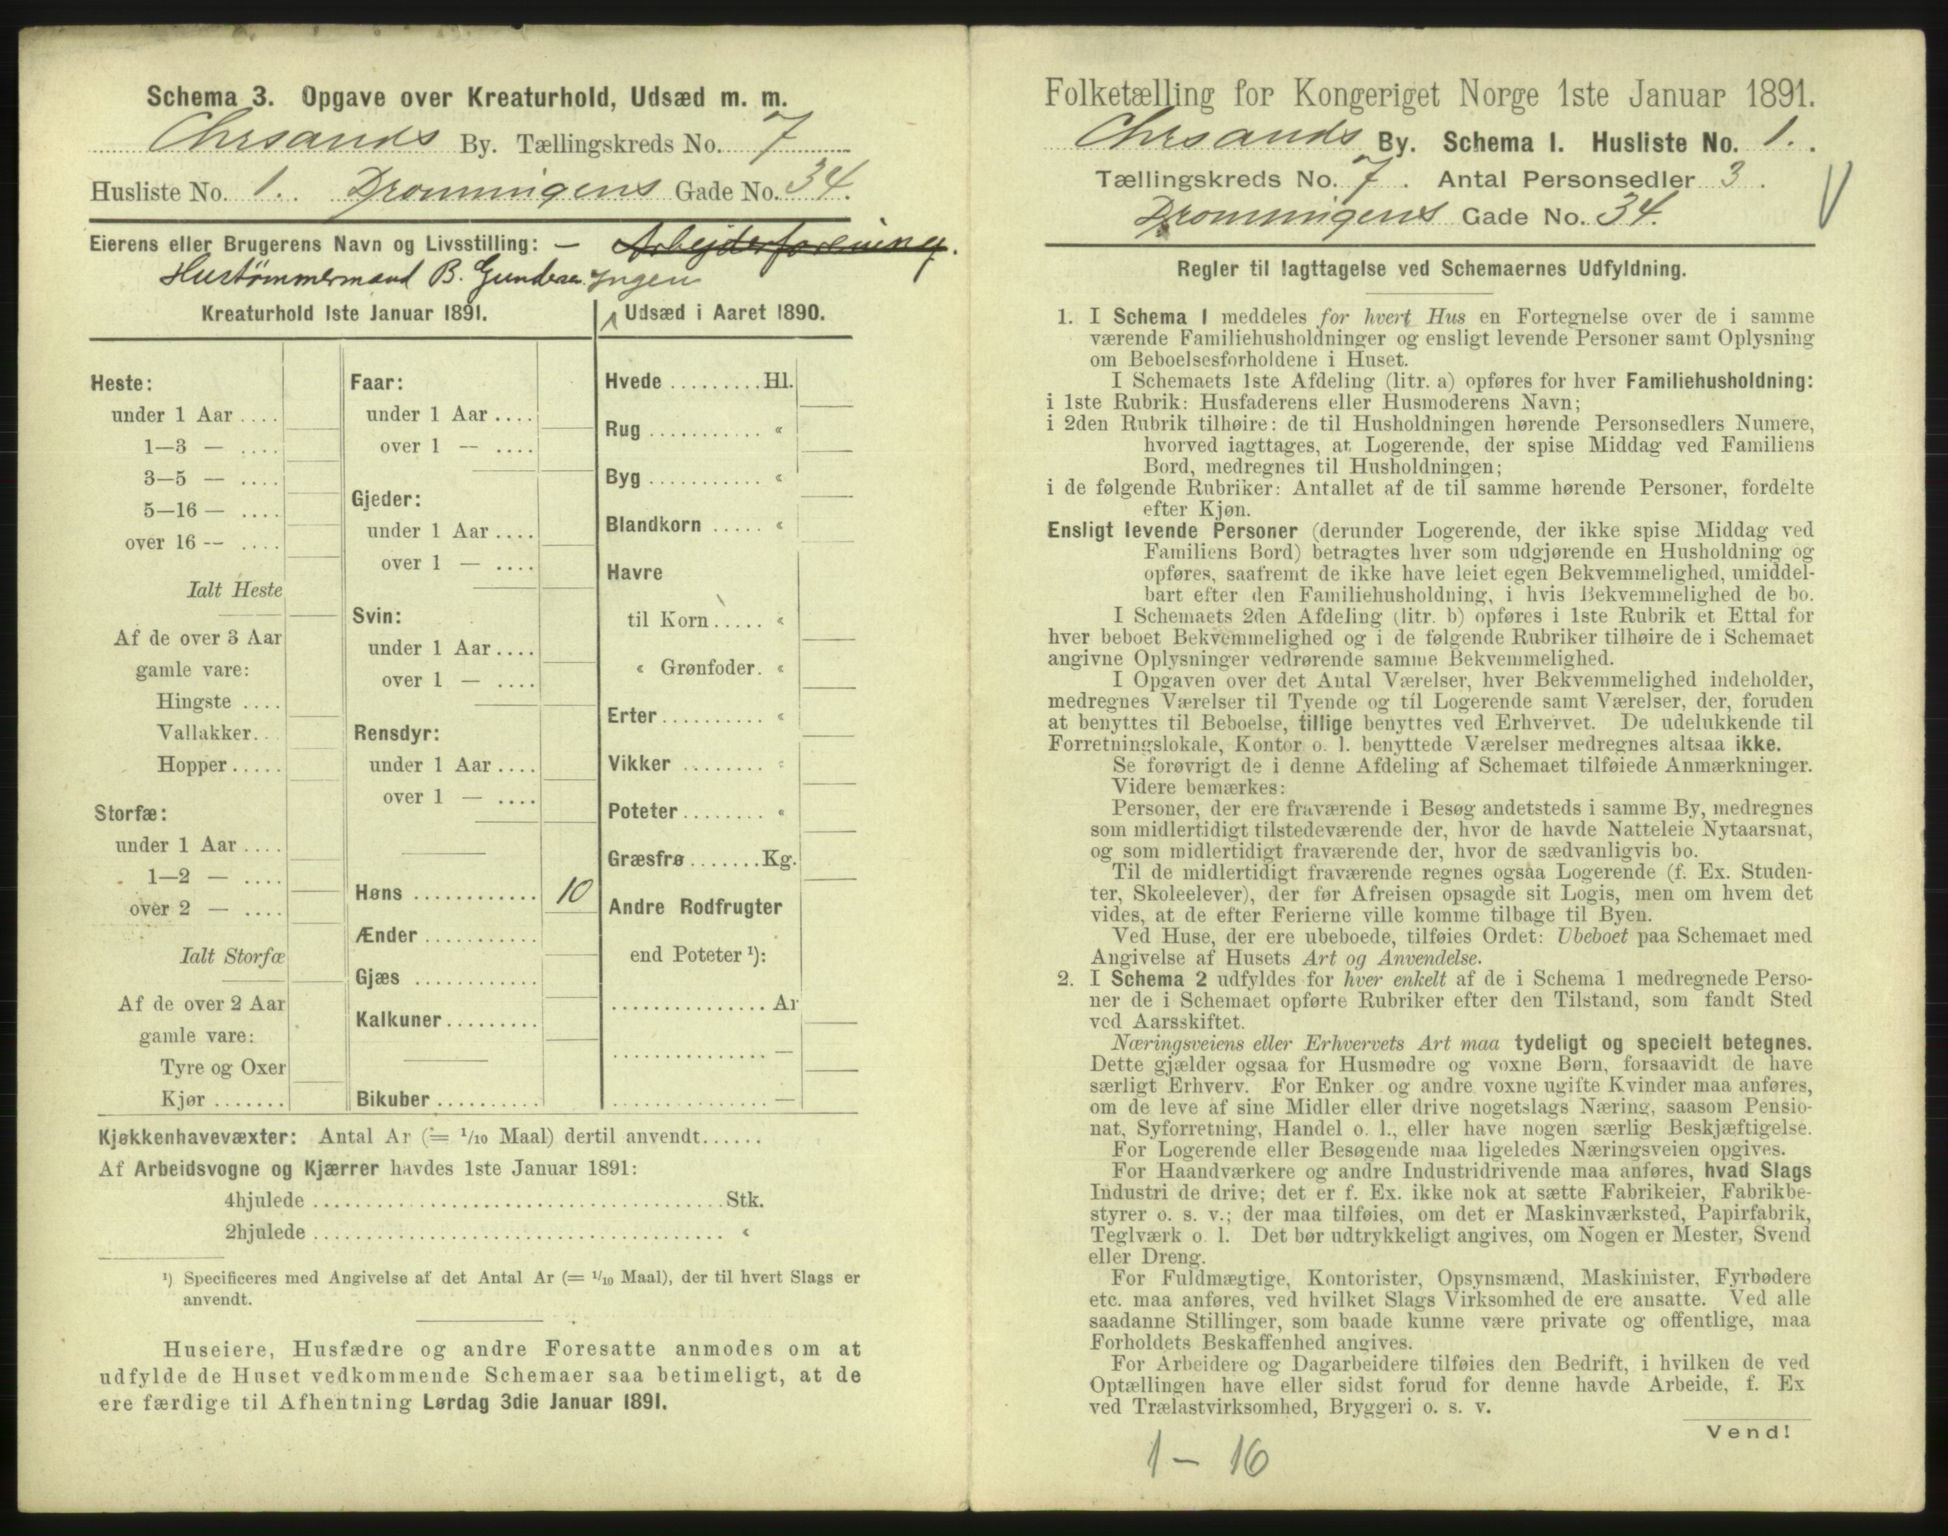 Schema 3. Opgave over Kreaturhold, Udsæd m. m.
Chrsands By. Tællingskreds No. 7
Husliste No. 1. Dronningens Gade No. 34.
Eierens eller Brugerens Navn og Livsstilling: – Arbejderforening.
Hustømmermand B. Gundersen Ingen
Kreaturhold 1ste Januar 1891.
Heste:
under 1 Aar ....
1—3 — ....
3—5 — ....
5—16 — ....
over 16 — ....
Ialt Heste
Af de over 3 Aar
gamle vare:
Hingste ....
Vallakker..
Hopper .....
Storfæ:
under 1 Aar ....
1—2 — ....
over 2 — ....
Ialt Storfæ
Af de over 2 Aar
gamle vare:
Tyre og Oxer
Kjør .......
Faar:
under 1 Aar ....
over 1 — ....
Gjeder:
under 1 Aar ....
over 1 — ....
Svin:
under 1 Aar ....
over 1 — ....
Rensdyr:
under 1 Aar ....
over 1 — ....
Høns ............ 10
Ænder ...........
Gjæs ............
Kalkuner .........
Bikuber ..........
Udsæd i Aaret 1890.
Hvede ......... Hl.
Rug ........... «
Byg ........... «
Blandkorn ..... «
Havre
til Korn ..... «
« Grønfoder. «
Erter .......... «
Vikker ........ «
Poteter ........ «
Græsfrø ....... Kg.
Andre Rodfrugter
end Poteter ¹):
............... Ar
............... —
............... —
Kjøkkenhavevæxter: Antal Ar (= 1/10 Maal) dertil anvendt......
Af Arbeidsvogne og Kjærrer havdes 1ste Januar 1891:
4hjulede ....................................... Stk.
2hjulede ....................................... «
¹) Specificeres med Angivelse af det Antal Ar (= 1/10 Maal), der til hvert Slags er
anvendt.
Huseiere, Husfædre og andre Foresatte anmodes om at
udfylde de Huset vedkommende Schemaer saa betimeligt, at de
ere færdige til Afhentning Lørdag 3die Januar 1891.
Folketælling for Kongeriget Norge 1ste Januar 1891.
Chrsands By. Schema I. Husliste No. 1.
Tællingskreds No. 7. Antal Personsedler 3.
Dronningens Gade No. 34.
Regler til Iagttagelse ved Schemaernes Udfyldning.
1. I Schema 1 meddeles for hvert Hus en Fortegnelse over de i samme
værende Familiehusholdninger og ensligt levende Personer samt Oplysning
om Beboelsesforholdene i Huset.
I Schemaets 1ste Afdeling (litr. a) opføres for hver Familiehusholdning:
i 1ste Rubrik: Husfaderens eller Husmoderens Navn;
i 2den Rubrik tilhøire: de til Husholdningen hørende Personsedlers Numere,
hvorved iagttages, at Logerende, der spise Middag ved Familiens
Bord, medregnes til Husholdningen;
i de følgende Rubriker: Antallet af de til samme hørende Personer, fordelte
efter Kjøn.
Ensligt levende Personer (derunder Logerende, der ikke spise Middag ved
Familiens Bord) betragtes hver som udgjørende en Husholdning og
opføres, saafremt de ikke have leiet egen Bekvemmelighed, umiddel-
bart efter den Familiehusholdning, i hvis Bekvemmelighed de bo.
I Schemaets 2den Afdeling (litr. b) opføres i 1ste Rubrik et Ettal for
hver beboet Bekvemmelighed og i de følgende Rubriker tilhøire de i Schemaet
angivne Oplysninger vedrørende samme Bekvemmelighed.
I Opgaven over det Antal Værelser, hver Bekvemmelighed indeholder,
medregnes Værelser til Tyende og til Logerende samt Værelser, der, foruden
at benyttes til Beboelse, tillige benyttes ved Erhvervet. De udelukkende til
Forretningslokale, Kontor o. l. benyttede Værelser medregnes altsaa ikke.
Se forøvrigt de i denne Afdeling af Schemaet tilføiede Anmærkninger.
Videre bemærkes:
Personer, der ere fraværende i Besøg andetsteds i samme By, medregnes
som midlertidigt tilstedeværende der, hvor de havde Natteleie Nytaarsnat,
og som midlertidigt fraværende der, hvor de sædvanligvis bo.
Til de midlertidigt fraværende regnes ogsaa Logerende (f. Ex. Studen-
ter, Skoleelever), der før Afreisen opsagde sit Logis, men om hvem det
vides, at de efter Ferierne ville komme tilbage til Byen.
Ved Huse, der ere ubeboede, tilføies Ordet: Ubeboet paa Schemaet med
Angivelse af Husets Art og Anvendelse.
2. I Schema 2 udfyldes for hver enkelt af de i Schema 1 medregnede Perso-
ner de i Schemaet opførte Rubriker efter den Tilstand, som fandt Sted
ved Aarsskiftet.
Næringsveiens eller Erhvervets Art maa tydeligt og specielt betegnes.
Dette gjælder ogsaa for Husmødre og voxne Børn, forsaavidt de have
særligt Erhverv. For Enker og andre voxne ugifte Kvinder maa anføres,
om de leve af sine Midler eller drive nogetslags Næring, saasom Pensio-
nat, Syforretning, Handel o. l., eller have nogen særlig Beskjæftigelse.
For Logerende eller Besøgende maa ligeledes Næringsveien opgives.
For Haandværkere og andre Industridrivende maa anføres, hvad Slags
Industri de drive; det er f. Ex. ikke nok at sætte Fabrikeier, Fabrikbe-
styrer o. s. v.; der maa tilføies, om det er Maskinværksted, Papirfabrik,
Teglværk o. l. Det bør udtrykkeligt angives, om Nogen er Mester, Svend
eller Dreng.
For Fuldmægtige, Kontorister, Opsynsmænd, Maskinister, Fyrbødere
etc. maa anføres, ved hvilket Slags Virksomhed de ere ansatte. Ved alle
saadanne Stillinger, som baade kunne være private og offentlige, maa
Forholdets Beskaffenhed angives.
For Arbeidere og Dagarbeidere tilføies den Bedrift, i hvilken de ved
Optællingen have eller sidst forud for denne havde Arbeide, f. Ex
ved Trælastvirksomhed, Bryggeri o. s. v.
Vend!
1 – 16